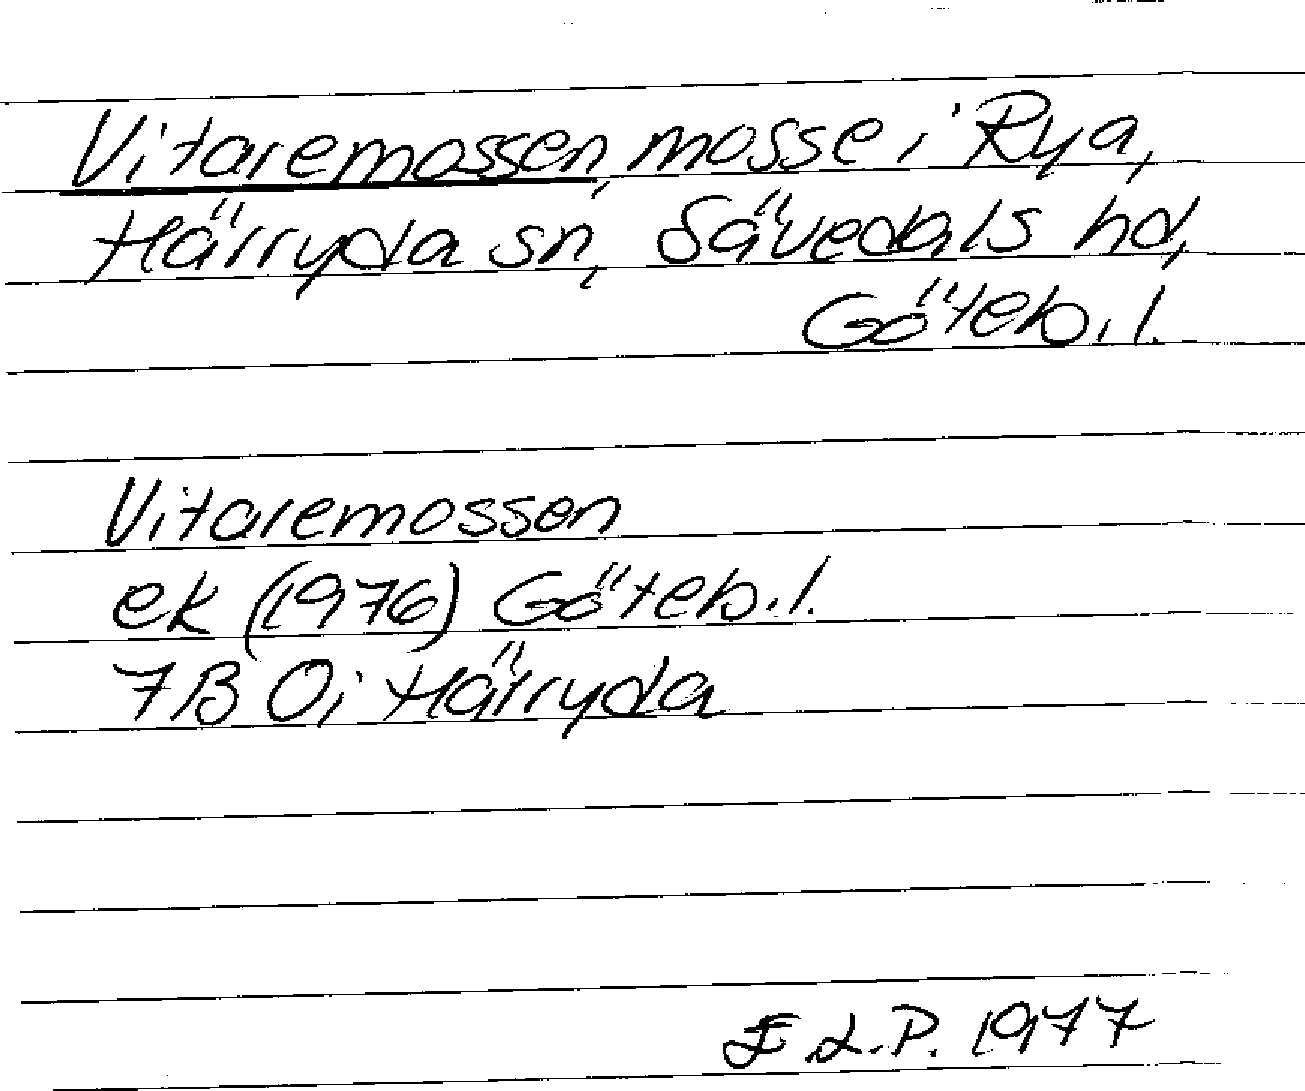 Vitaremossen, mosse i Rya,
Härryda sn, Sävedals hd,
Göteb. l.
Vitaremossen
ek (1976) Göteb. l.
7B 0i Härryda
E.L.P. 1977